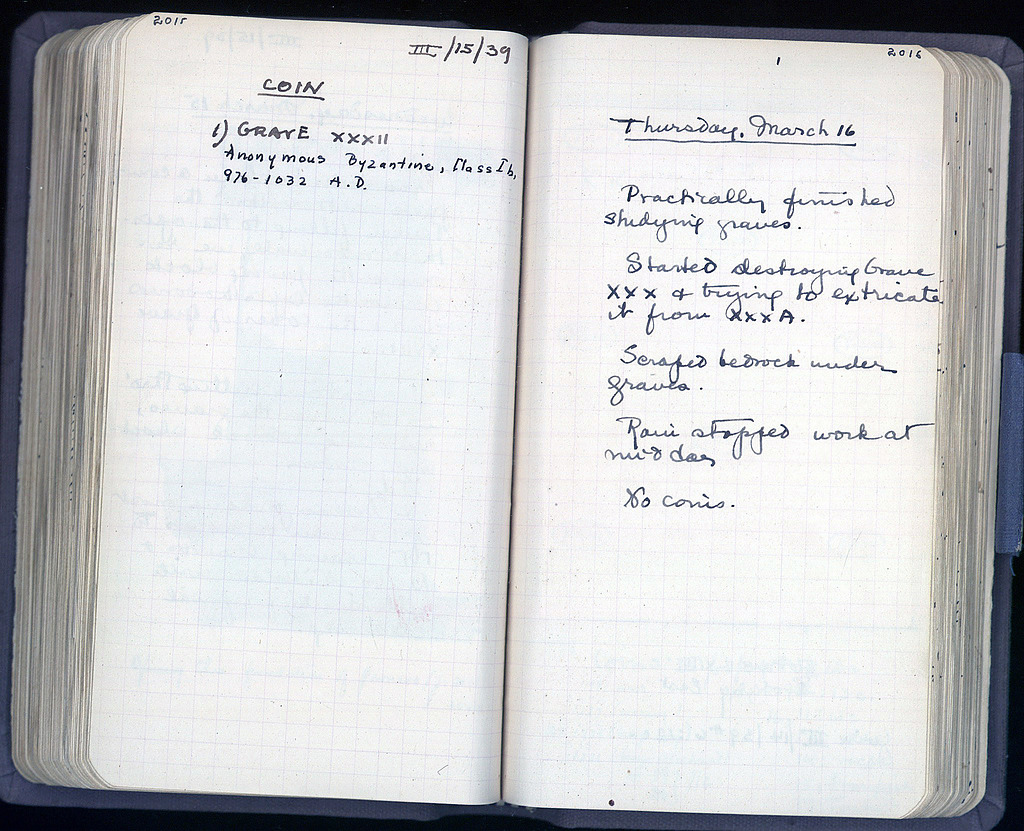 2015
III/15/39
COIN
1) GRAVE XXXII
Anonymous Byzantine, Class Ib,
976-1032 A.D.
2016
Thursday, March 16
Practically finished
studying graves.
Started destroying Grave
XXX & trying to extricate
it from XXXA.
Scraped bedrock under
graves.
Rain stopped work at
midday
No coins.